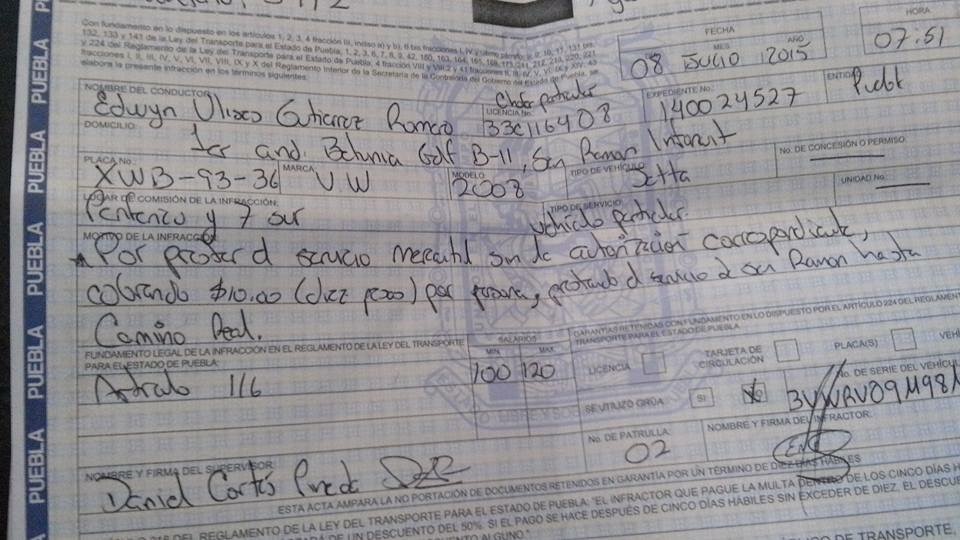 PUEBLA PUEBLA PUEBLA PUEBLA PUEBLA
Con fundamento en lo dispuesto en los artículos 1, 2, 3, 4 fracción
132, 133 y 141 de la Ley del Transporte para el Estado de Puebla,
y 224 del Reglamento de la Ley del Transporte para el Estado de Puebla,
fracciones I, II, III, IV, V, VI, VII, VIII, IX y X del Reglamento Interior de la Secretaría de la Contraloría del Gobierno del Estado de Puebla, se
elabora la presente infracción en los términos siguientes:
FECHA HORA
08 JULIO 2015 07:51
MES AÑO
NOMBRE DEL CONDUCTOR LICENCIA No. EXPEDIENTE No. ENTID
Chofer particular
Edwyn Ulises Gutierrez Romero 33C116408 140024527 Puebla
DOMICILIO:
1er and. Betunia Golf B-11, San Ramon
PLACA No. MARCA MODELO TIPO DE VEHÍCULO No. DE CONCESIÓN O PERMISO
XWB-93-36 V.W 2008 Jetta
LUGAR DE COMISIÓN DE LA INFRACCIÓN: TIPO DE SERVICIO UNIDAD No.
y 7 sur vehiculo particular.
MOTIVO DE LA INFRACCIÓN:
Por prestar el servicio mercantil sin la autorización correspondiente,
cobrando $10.00 (diez pesos) por persona, prestando el servicio de San Ramon hasta
Camino Real.
FUNDAMENTO LEGAL DE LA INFRACCIÓN EN EL REGLAMENTO DE LA LEY DEL TRANSPORTE
PARA EL ESTADO DE PUEBLA:
SALARIOS
MIN. MAX.
Articulo 116 100 120
GARANTÍAS RETENIDAS CON FUNDAMENTO EN LO DISPUESTO POR EL ARTÍCULO 224 DEL REGLAMEN
TRANSPORTE PARA EL ESTADO DE PUEBLA
LICENCIA TARJETA DE CIRCULACIÓN PLACA(S) VEH
SE UTILIZO GRÚA SI No. DE SERIE DEL VEHÍCU
3VWRV09M98M
No. DE PATRULLA NOMBRE Y FIRMA DEL INFRACTOR.
02
NOMBRE Y FIRMA DEL SUPERVISOR:
Daniel Cortés
ESTA ACTA AMPARA LA NO PORTACIÓN DE DOCUMENTOS RETENIDOS EN GARANTÍA POR UN TÉRMINO DE DIEZ DÍAS HÁBILES
DEL REGLAMENTO DE LA LEY DEL TRANSPORTE PARA EL ESTADO DE PUEBLA: "EL INFRACTOR QUE PAGUE LA MULTA DENTRO DE LOS CINCO DÍAS H
DE UN DESCUENTO DEL 50%. SI EL PAGO SE HACE DESPUÉS DE CINCO DÍAS HÁBILES SIN EXCEDER DE DIEZ, EL DESCUE
ALGUNO."
DE TRANSPORTE,